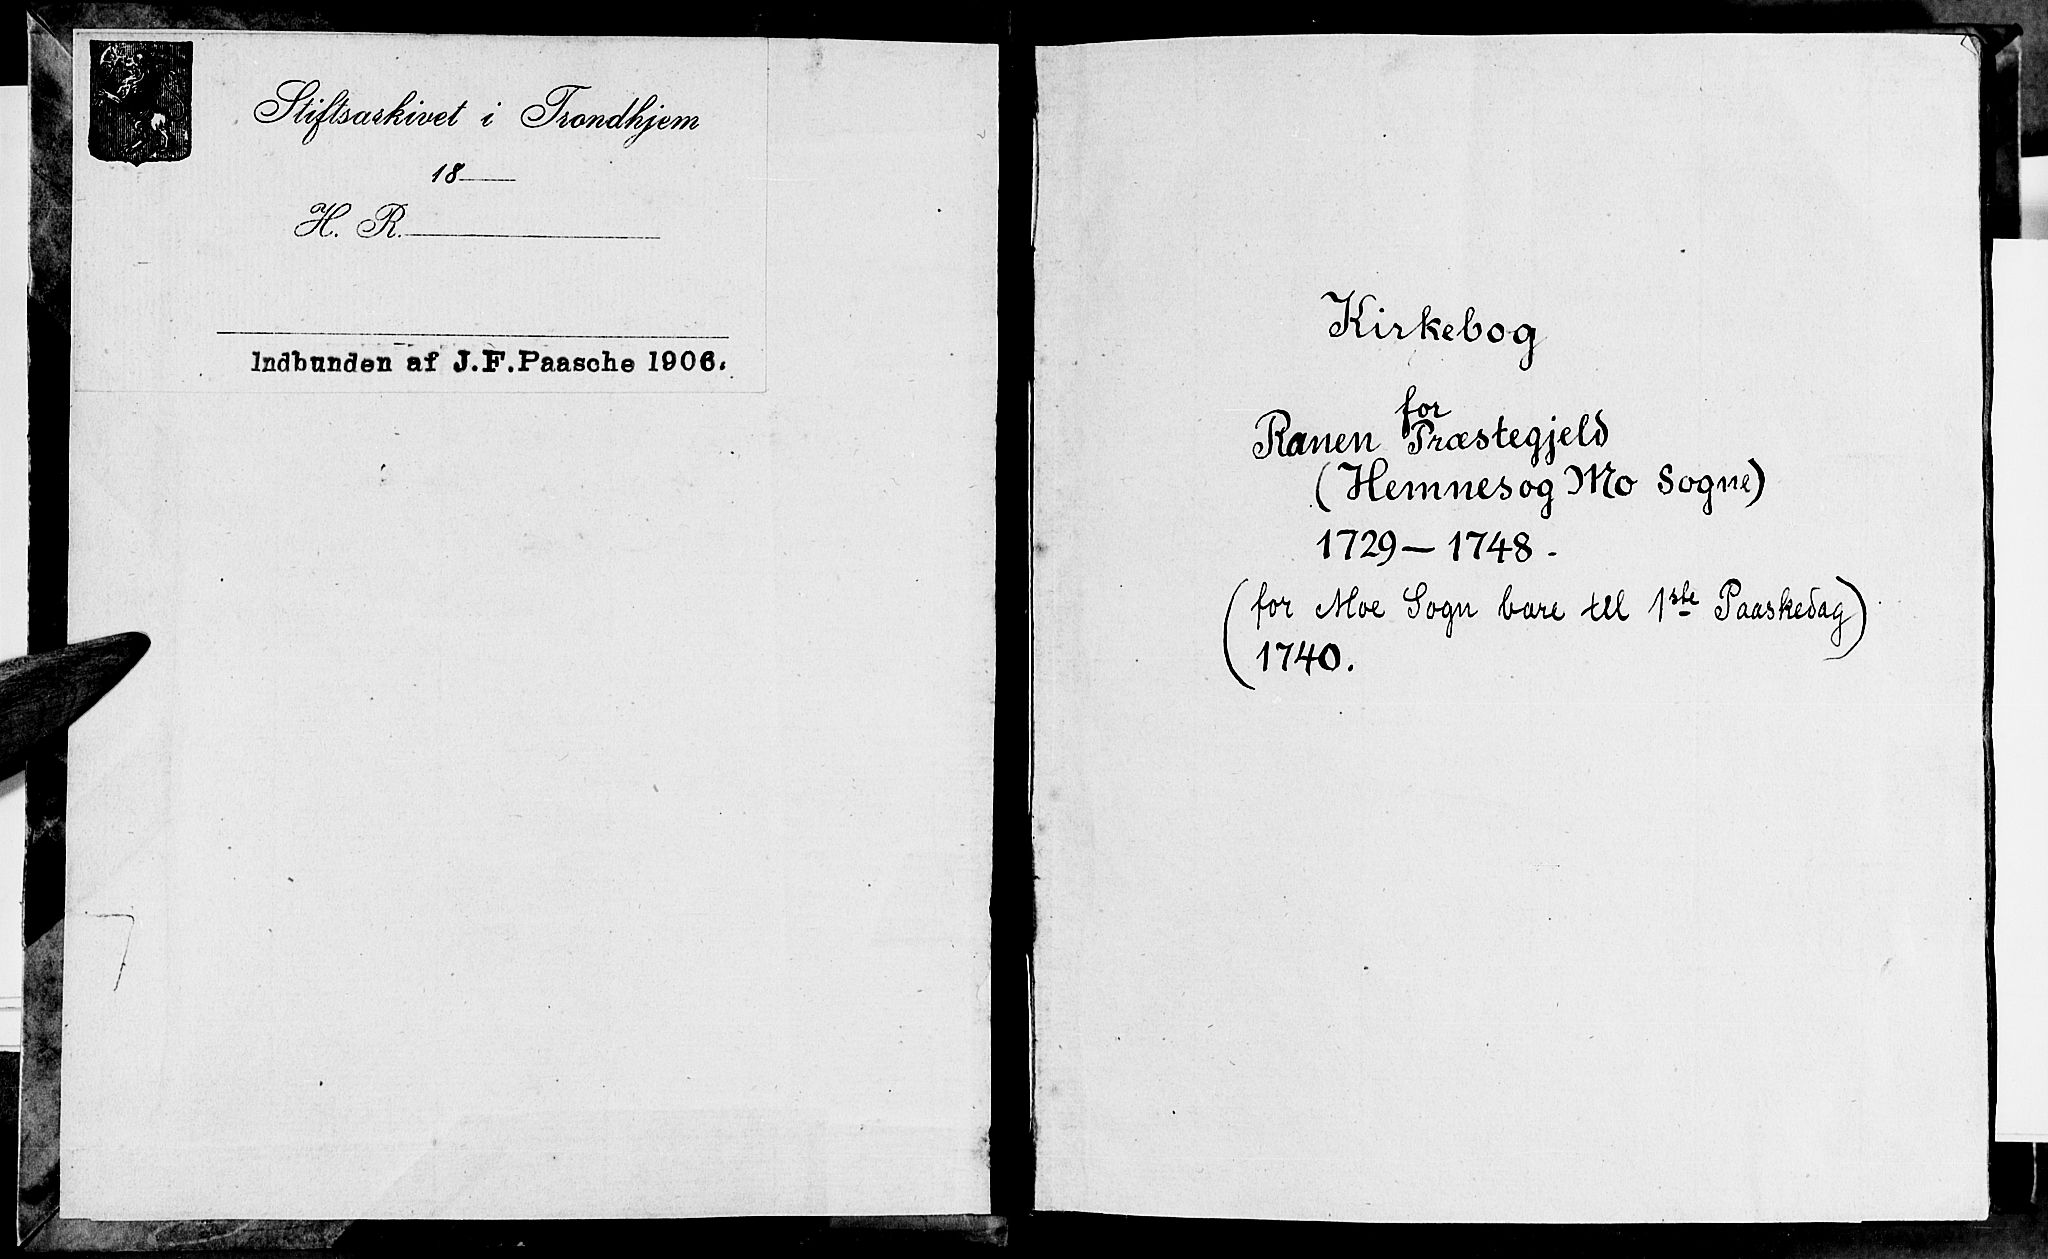 Stiftsarkivet i Trondhjem
18
H. R.
Indbunden af J.F.Paasche 1906.
Kirkebog
for
Ranen Præstegjeld
(Hemnes og Mo Sogne)
1729 — 1748.
(for Moe Sogn bare til 1ste Paaskedag)
1740.